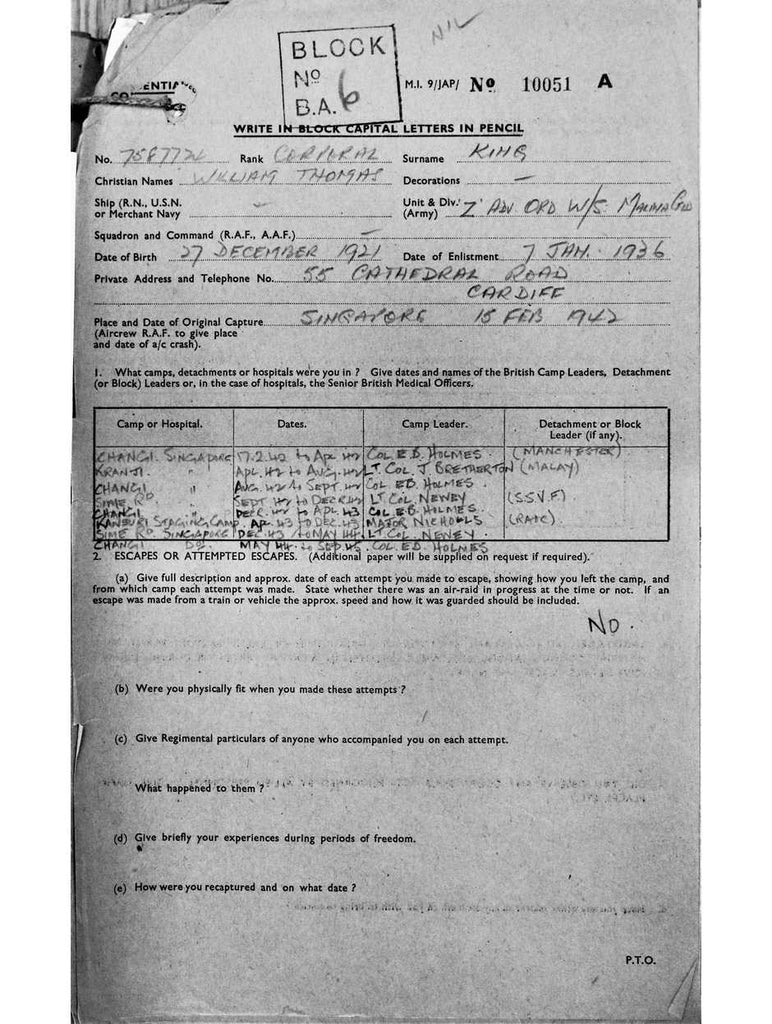 BLOCK
No
B.A. 6
NIL
M.I. 9/JAP/ No 10051 A
WRITE IN BLOCK CAPITAL LETTERS IN PENCIL
No. Rank CORPORAL Surname KING
Christian Names WILLIAM THOMAS Decorations —
Ship (R.N., U.S.N. or Merchant Navy —
Unit & Div. (Army) 'Z' ADV ORD W/S
Squadron and Command (R.A.F., A.A.F.) —
Date of Birth 27 DECEMBER 1921 Date of Enlistment 7 JAN. 1936
Private Address and Telephone No. 55 CATHEDRAL ROAD
CARDIFF
Place and Date of Original Capture SINGAPORE 15 FEB 1942
(Aircrew R.A.F. to give place
and date of a/c crash).
1. What camps, detachments or hospitals were you in ? Give dates and names of the British Camp Leaders, Detachment
(or Block) Leaders or, in the case of hospitals, the Senior British Medical Officers.
Camp or Hospital. Dates. Camp Leader. Detachment or Block
Leader (if any).
CHANGI. SINGAPORE 17.2.42 to APL 42 COL E.B. HOLMES. (MANCHESTER)
KRANJI. " APL. 42 to AUG. 42 LT. COL J BRETHERTON (MALAY)
CHANGI " AUG. 42 to SEPT. 42 COL EB. HOLMES.
SIME RD. " SEPT 42 to DECR 42 LT. COL. NEWEY (S.S.V.F)
CHANGI " DECR. 42 to APL 43 COL EB. HOLMES.
KANBURI STAGING CAMP. APL 43 to DEC. 43 MAJOR NICHOLLS
SIME RD. SINGAPORE DEC. 43 to MAY 44. LT. COL. NEWEY.
CHANGI DO. MAY 44. to SEP. 45. COL. E.B. HOLMES
2. ESCAPES OR ATTEMPTED ESCAPES. (Additional paper will be supplied on request if required).
(a) Give full description and approx. date of each attempt you made to escape, showing how you left the camp, and
from which camp each attempt was made. State whether there was an air-raid in progress at the time or not. If an
escape was made from a train or vehicle the approx. speed and how it was guarded should be included.
NO.
(b) Were you physically fit when you made these attempts ?
(c) Give Regimental particulars of anyone who accompanied you on each attempt.
What happened to them ?
(d) Give briefly your experiences during periods of freedom.
(e) How were you recaptured and on what date ?
P.T.O.